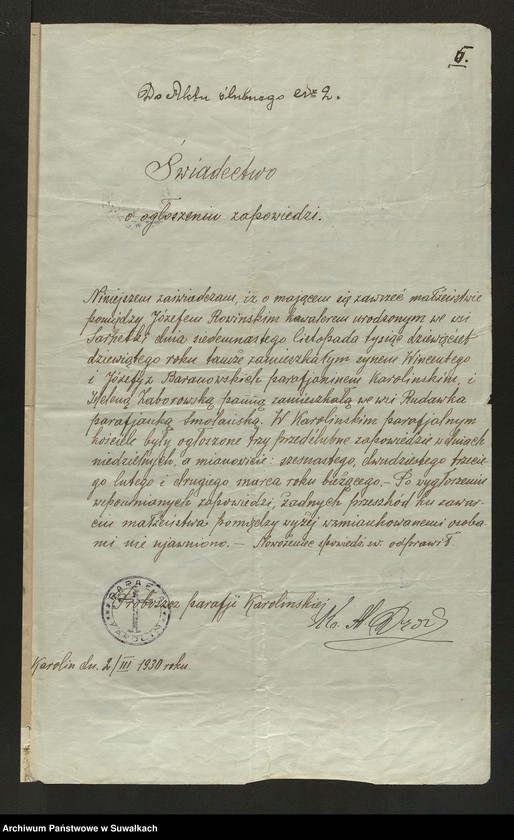 6.
Do Aktu ślubnego № 2.
Świadectwo
o ogłoszeniu zapowiedzi.
Niniejszem zaświadczam, iż o mającem się zawrzeć małżeństwie
pomiędzy Józefem Rowińskim kawalerem urodzonym we wsi
dnia siedemnastego listopada tysiąc dziewięćset
dziewiątego roku tamże zamieszkałym synem Wincentego
i Józefy z Baranowskich parafjaninem Karolińskim, i
Heleną Zaborowską panną zamieszkałą we wsi Rudawka
parafjanką . W Karolińskim parafjalnym
kościele były ogłoszone trzy przedślubne zapowiedzie w dniach
niedzielnych, a mianowicie: szesnastego, dwudziestego trzecie-
go lutego i drugiego marca roku bieżącego. – Po wygłoszeniu
wspomnianych zapowiedzi, żadnych przeszkód ku zawar-
ciu małżeństwa pomiędzy wyżej wzmiankowanemi osoba-
mi nie ujawniono. – Nowożeniec spowiedź św. odprawił.
Proboszcz parafji Karolińskiej
Ks. A.
PARAFIA
KAROLIN
Karolin dn. 2/III 1930 roku.
Archiwum Państwowe w Suwałkach